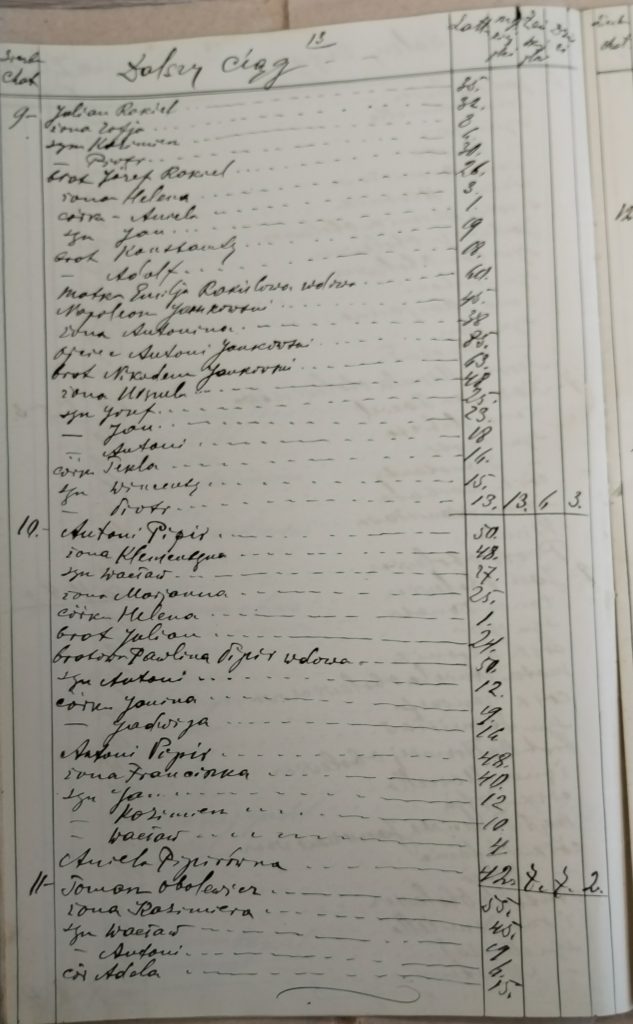 13
Dalszy Ciąg
Chat
9- Julian Rakiel 35.
żona Zofja 32.
syn Kazimierz 8
— Piotr 6.
brat Józef Rakiel 30.
żona Helena 26.
córka - Aniela 3.
syn Jan 1
brat Konstanty 19
— Adolf 18.
matka Emilja Rakielowa wdowa 60.
Napoleon Jankowski 45
żona Antonina 38
ojciec Antoni Jankowski 85.
brat Nikodem Jankowski 63
żona Urszula 48
syn Józef 25.
— Jan 23.
— Antoni 18
córk Tekla 16.
syn Wincenty 15.
— Piotr 13. 13. 6 3.
10.- Antoni Pipir 50.
żona Klementyna 48.
syn Wacław 27.
żona Marjanna 25.
córk Helena 1.
brat Julian 24.
bratowa Pawlina Pipir wdowa 50.
syn Antoni 12.
córk Janina 19.
— Jadwiga 14
Antoni Pipir 48.
żona Franciszka 40.
syn Jan 12
— Kazimierz 10.
— Wacław 4.
Aniela Pipirówna 42. 7. 7. 2.
11- Toman Obolewicz 55.
żona Kazimiera 45.
syn Wacław 19
- Antoni 6.
cór Adela 15.